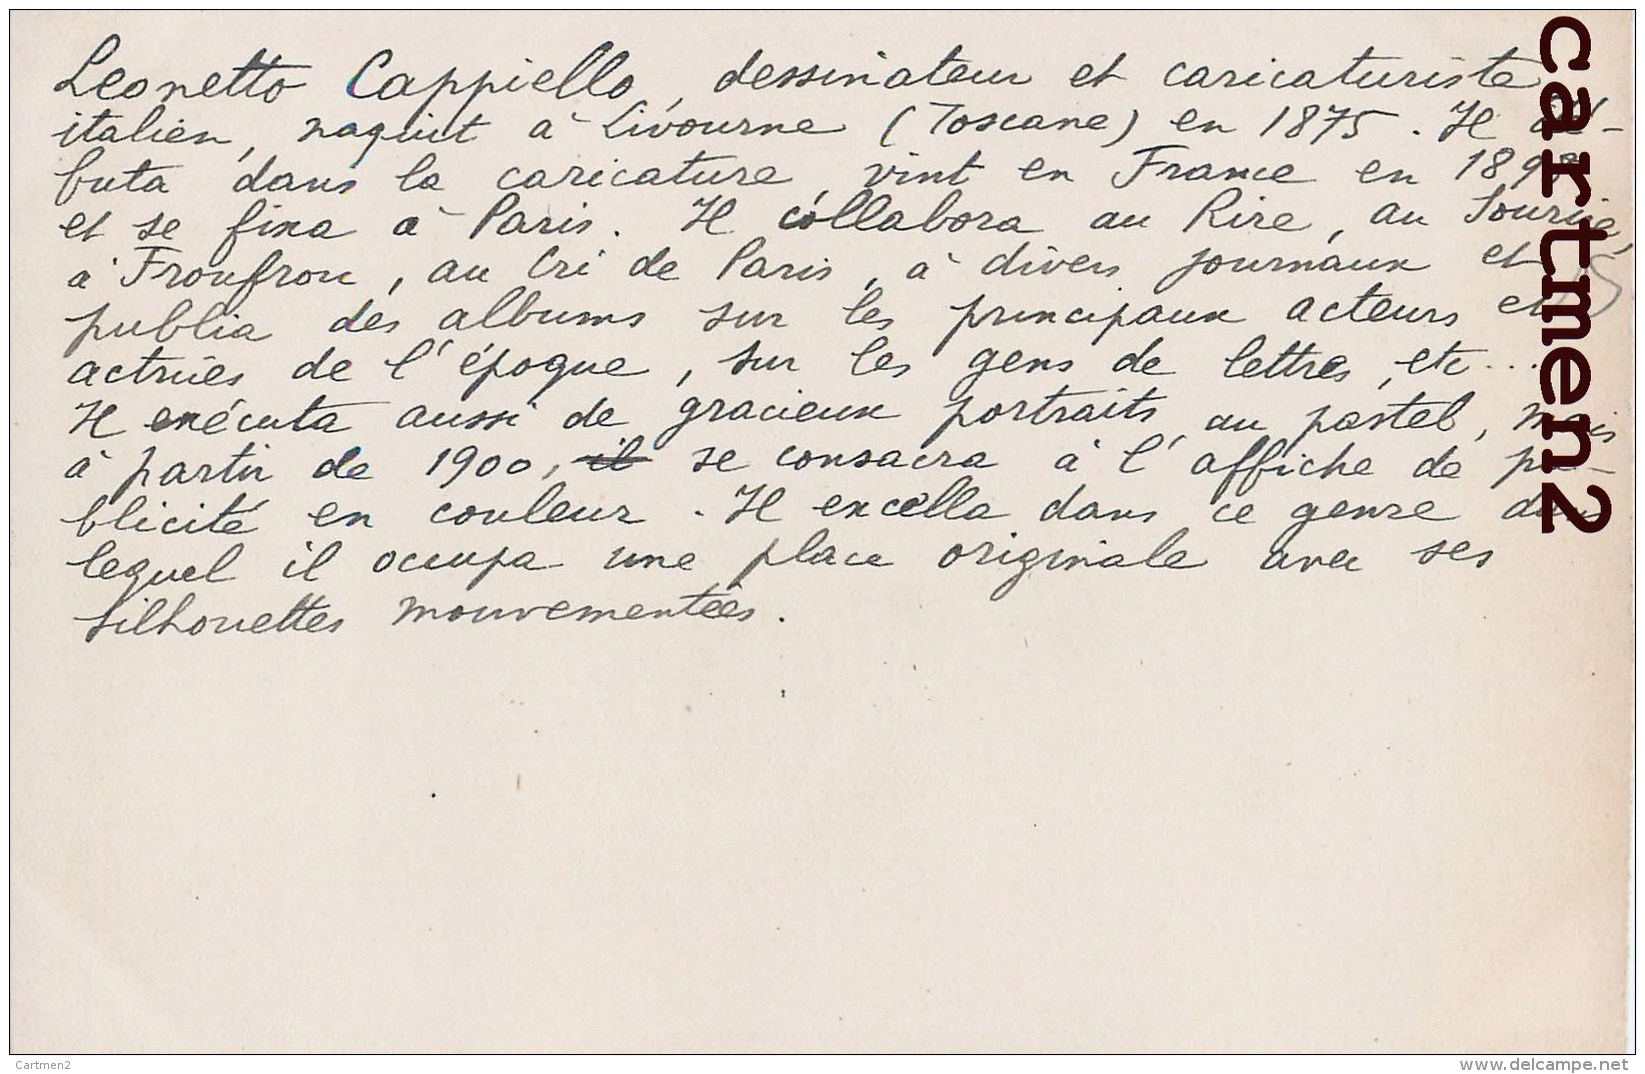 Leonetto Cappiello, dessinateur et caricaturiste
italien, naquit à Livourne (Toscane) en 1875. Il dé-
buta dans la caricature, vint en France en 189
et se fixa à Paris. Il collabora au Rire, au Sourire,
à Froufrou, au Cri de Paris, à divers journaux et
publia des albums sur les principaux acteurs et
actrices de l'époque, sur les gens de lettres, etc...
Il exécuta aussi de gracieux portraits au pastel, mais
à partir de 1900, il se consacra à l'affiche de pu-
blicité en couleur. Il excella dans ce genre dans
lequel il occupa une place originale avec ses
silhouettes mouvementées.
cartmen2
Cartmen2
www.delcampe.net